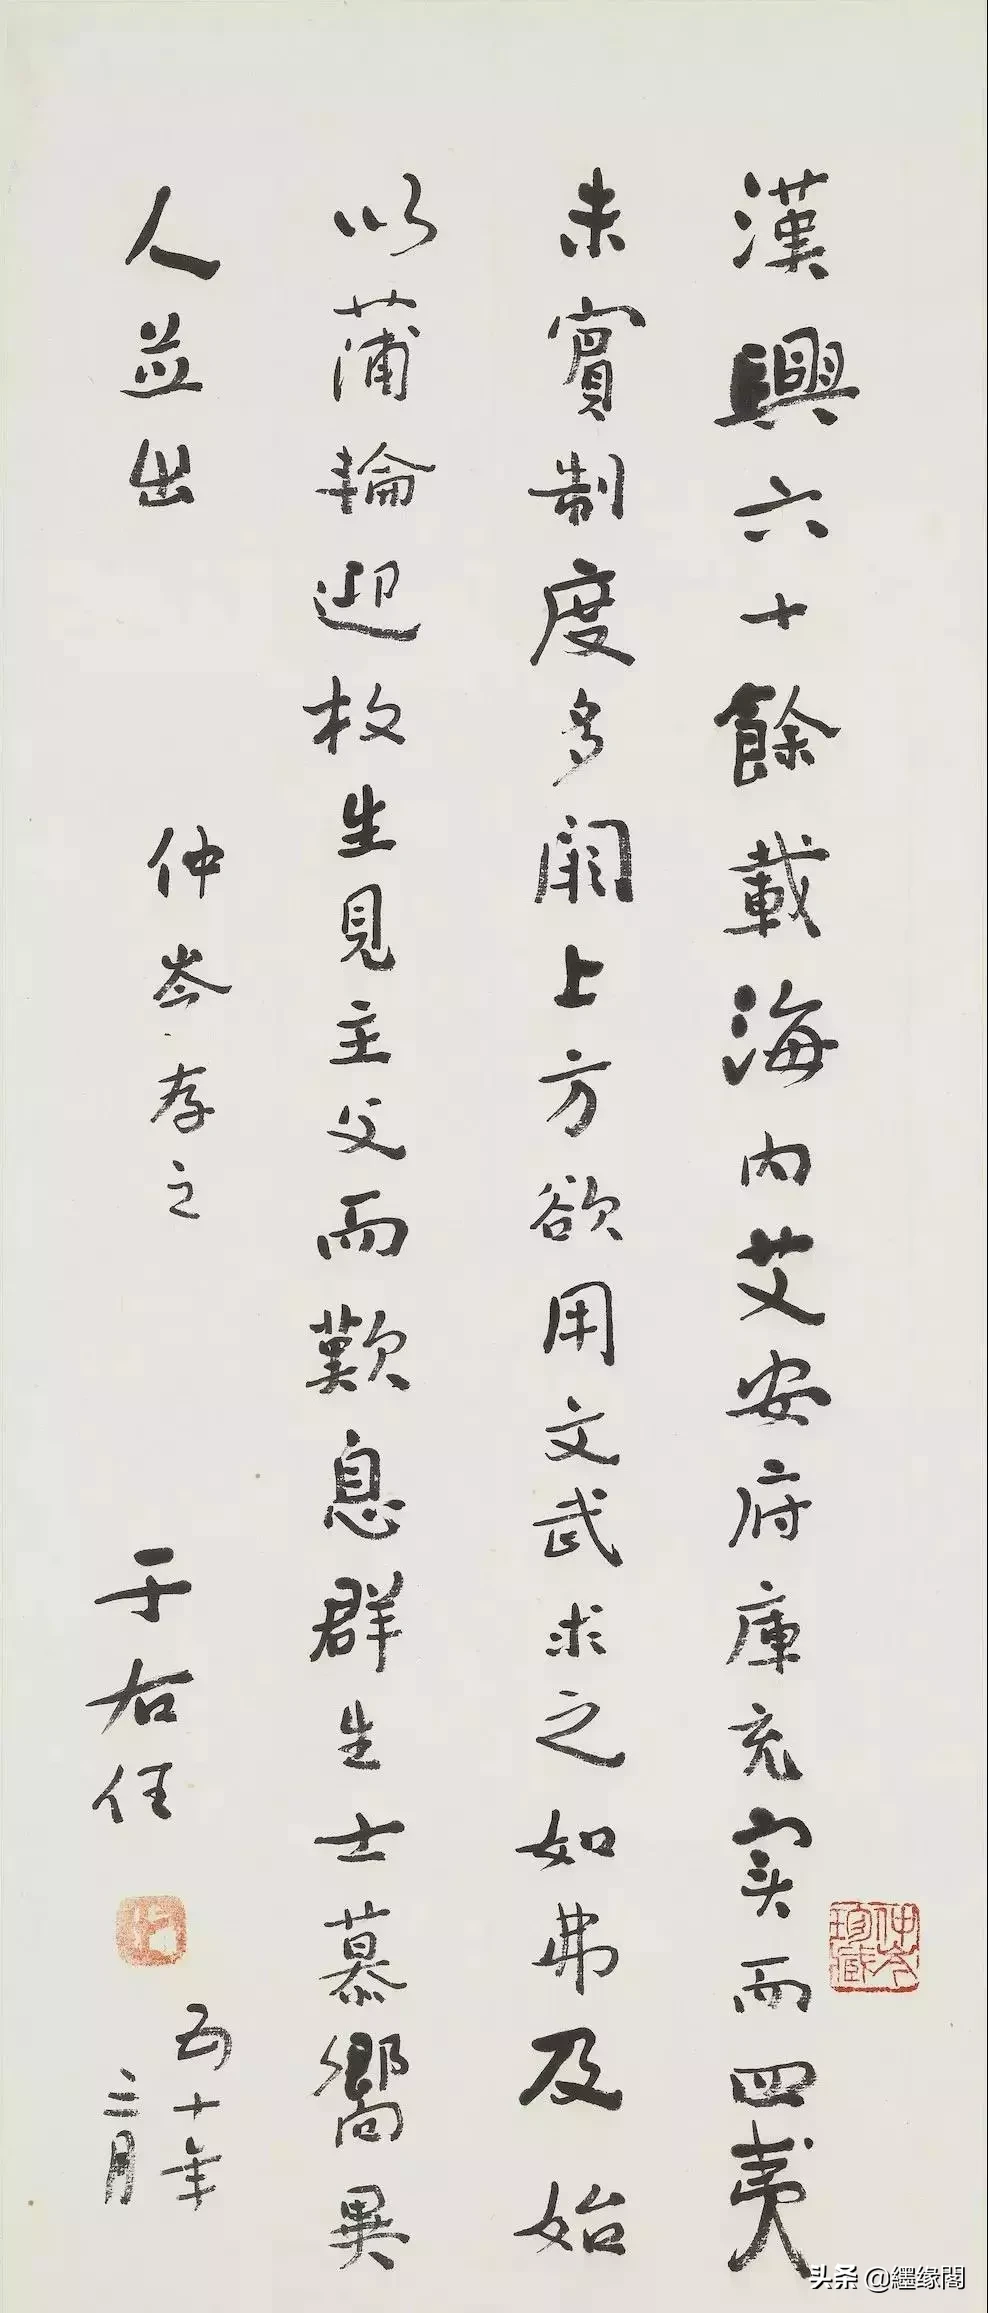 漢興六十餘載海内艾安府庫充实而四夷
未賓制度多闕上方欲用文武求之如弗及始
以蒲輪迎枚生見主父而歎息群生士慕嚮異
人並出
仲岑存之
于右任
五十年
二月
仲岑珍藏
头条 @纆缘閣